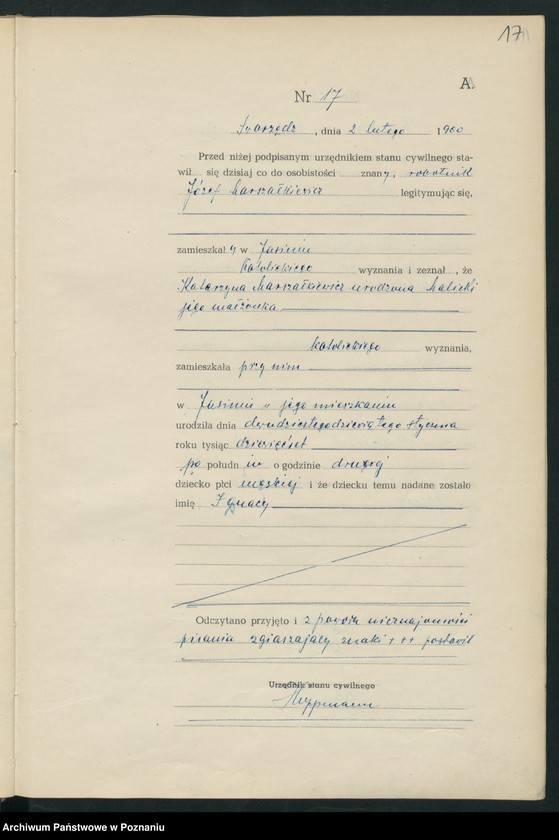 17
A.
Nr 17
Swarzędz, dnia 2 lutego 1900
Przed niżej podpisanym urzędnikiem stanu cywilnego sta-
wił się dzisiaj co do osobistości znany, robotnik
Józef Marszałkiewicz legitymując się,
zamieszkały w Jasiniu
katolickiego wyznania i zeznał, że
Katarzyna Marszałkiewicz urodzona Malicki
jego małżonka
katolickiego wyznania,
zamieszkała przy nim
w Jasiniu w jego mieszkaniu
urodziła dnia dwudziestegodziewiątego stycznia
roku tysiąc dziewięćset
po południu o godzinie drugiej
dziecko płci męskiej i że dziecku temu nadane zostało
imię Ignacy
Odczytano przyjęto i z powodu nieznajomości
pisania zgłaszający znaki + + + postawił
Urzędnik stanu cywilnego
Archiwum Państwowe w Poznaniu